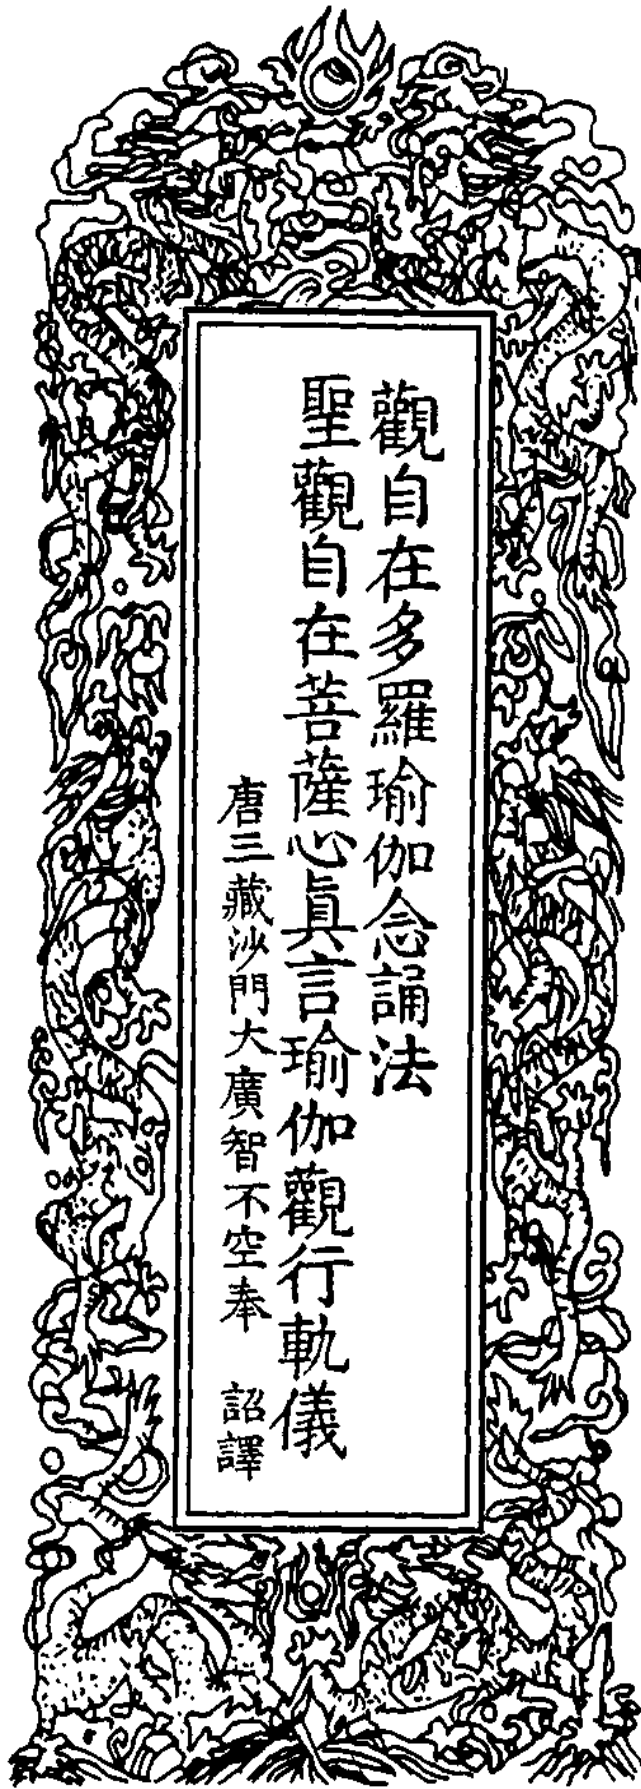 觀自在多羅瑜伽念誦法
聖觀自在菩薩心眞言瑜伽觀行軌儀
唐三藏沙門大廣智不空奉 詔譯